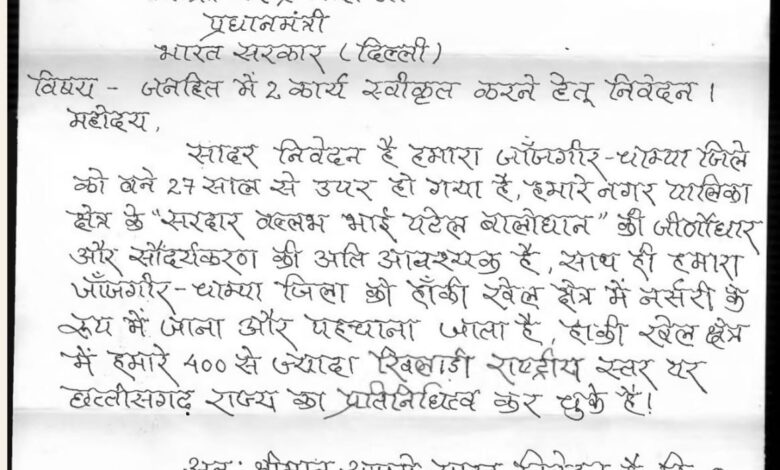 प्रधानमंत्री
भारत सरकार (दिल्ली)
विषय - जनहित में 2 कार्य स्वीकृत करने हेतू निवेदन।
महोदय,
सादर निवेदन है हमारा जाँजगीर-चाम्पा जिले
को बने 27 साल से उपर हो गया है, हमारे नगर पालिका
क्षेत्र के "सरदार वल्लभ भाई पटेल बालोधान" की जीर्णोधार
और सौदर्यकरण की अति आवश्यक है, साथ ही हमारा
जाँजगीर-चाम्पा जिला को हाँकी खेल क्षेत्र में नर्सरी के
रूप में जाना और पहचाना जाता है, हाकी खेल क्षेत्र
में हमारे 400 से ज्यादा खिलाड़ी राष्ट्रीय स्तर पर
छत्तीसगढ़ राज्य का प्रतिनिधित्व कर चुके है।
अतः श्रीमान